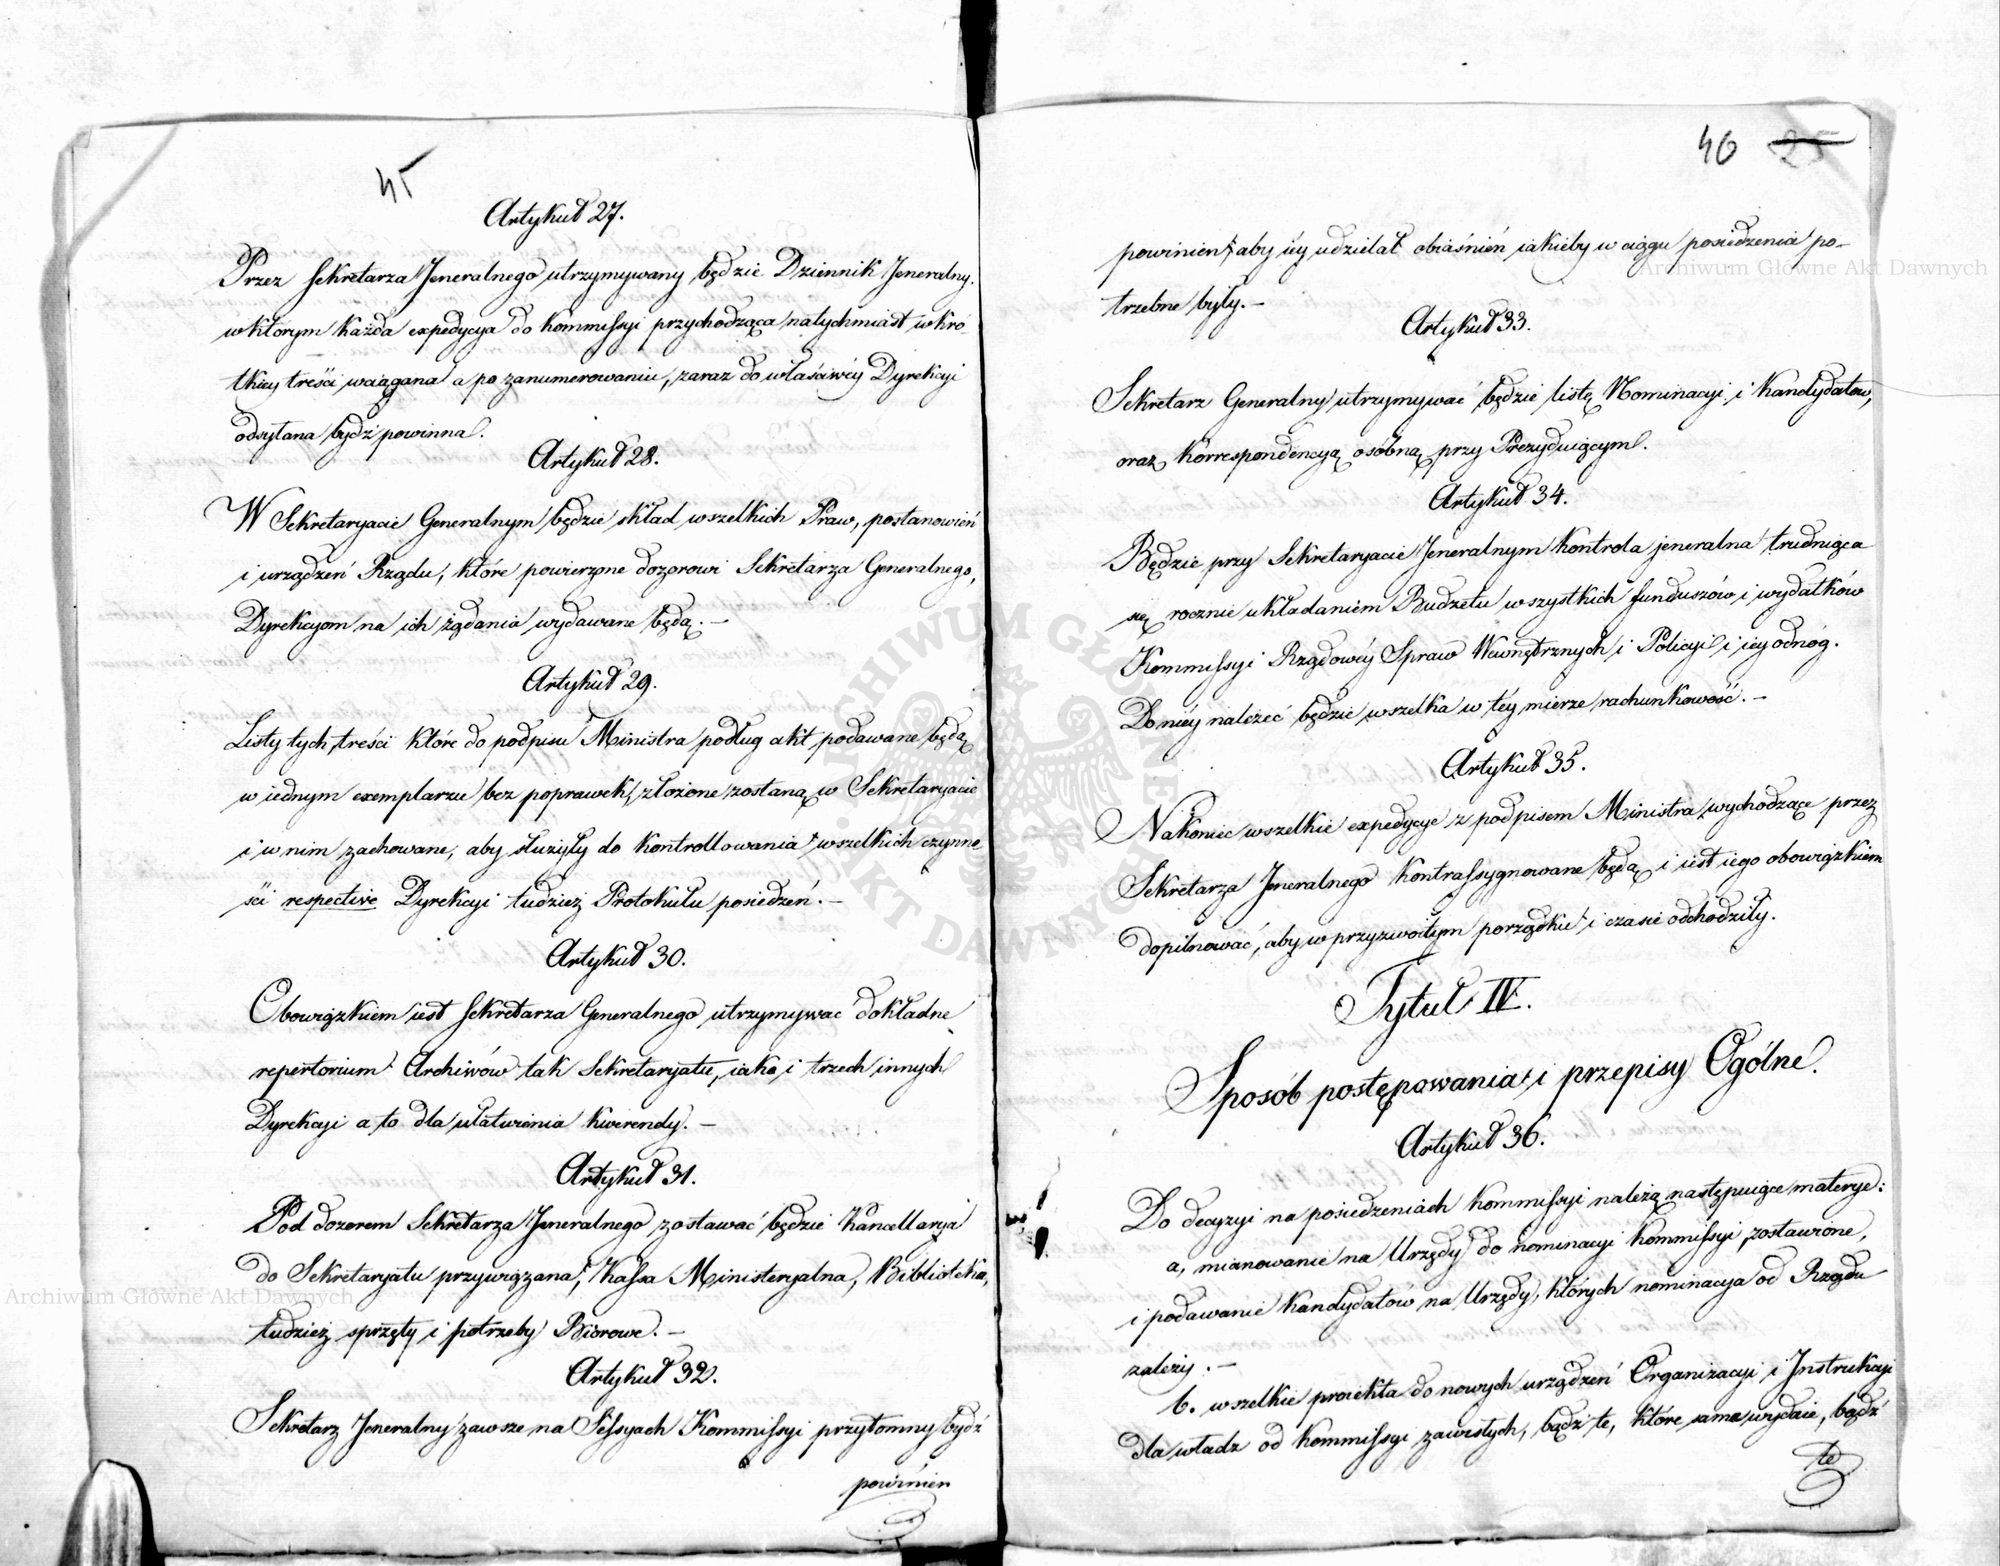 45
Artykuł 27.
Przez Sekretarza Jeneralnego utrzymywany będzie Dziennik Jeneralny.
w którym każda expedycya do Kommissyi przychodząca natychmiast w kró-
tkiey treści wciągana a po zanumerowaniu, zaraz do właściwéy Dyrekcyi
odsyłana bydź powinna.
Artykuł 28.
W Sekretaryacie Generalnym będzie skład wszelkich Praw, postanowień
i urządzeń Rządu, które powierzone dozorowi Sekretarza Generalnego,
Dyrekcyom na ich żądania wydawane będą. —
Artykuł 29.
Listy tych treści które do podpisu Ministra podług akt podawane będą
w iednym exemplarzu bez poprawek, złożone zostaną w Sekretaryacie
i w nim zachowane, aby służyły do kontrollowania wszelkich czynno
ści respective Dyrekcyi tudzież Protokułu posiedzeń. —
Artykuł 30.
Obowiązkiem iest Sekretarza Generalnego utrzymywac dokładne
repertorium Archiwów tak Sekretaryatu, iako i trzech innych
Dyrekcyi a to dla ułatwienia kwerendy. —
Artykuł 31.
Pod dozorem Sekretarza Jeneralnego zostawać będzie Kancellarya
do Sekretaryatu przywiązana, Kassa Ministeryalna, Biblioteka,
tudzież sprzęty i potrzeby Biórowe. —
Artykuł 32.
Sekretarz Jeneralny zawsze na Sessyach Kommissyi przytomny bydź
powinien
46 25
powinien aby iéy udzielał obiaśnień iakieby w ciągu posiedzenia po-
trzebne były. —
Artykuł 33.
Sekretarz Generalny utrzymywać będzie listę Nominacyi i Kandydatów,
oraz korrespondencyą osóbną przy Prezyduiącym.
Artykuł 34.
Będzie przy Sekretaryacie Jeneralnym Kontrola jeneralna trudniąca
się rocznie układaniem Budżetu wszystkich funduszów i wydatków
Kommissyi Rządowéy Spraw Wewnętrznych i Policyi i iey odnóg.
Do niéy należeć będzie wszelka w téy mierze rachunkowość. —
Artykuł 35.
Nakoniec wszelkie expedycye z podpisem Ministra wychodzące przez
Sekretarza Jeneralnego kontrassygnowane będą i iest iego obowiązkiem
dopilnować, aby w przyzwoitym porządku i czasie odchodziły.
Tytuł IV.
Sposób postępowania i przepisy Ogólne.
Artykuł 36.
Do decyzyi na posiedzeniach Kommissyi należą następuiące materye:
a, mianowanie na Urzędy do nominacyi Kommissyi zostawione,
i podawanie kandydatów na Urzędy, których nominacya od Rządu
zależy. —
b. wszelkie proiekta do nowych urządzeń Organizacyi i Instrukcyi
dla władz od Kommissyi zawisłych, bądź te, które sama wydaie, bądź
te
Archiwum Główne Akt Dawnych
Archiwum Główne Akt Dawnych
ARCHIWUM GŁÓWNE AKT DAWNYCH